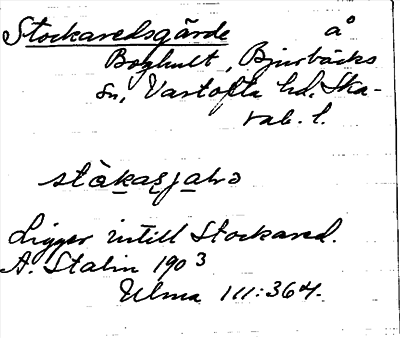 Stockaredsgärde å
Boghult, Bjurbäcks
sn, Vartofta hd, Ska-
rab. l.
Ligger intill Stockared.
A. Stalin 1903
Ulma 111:364.